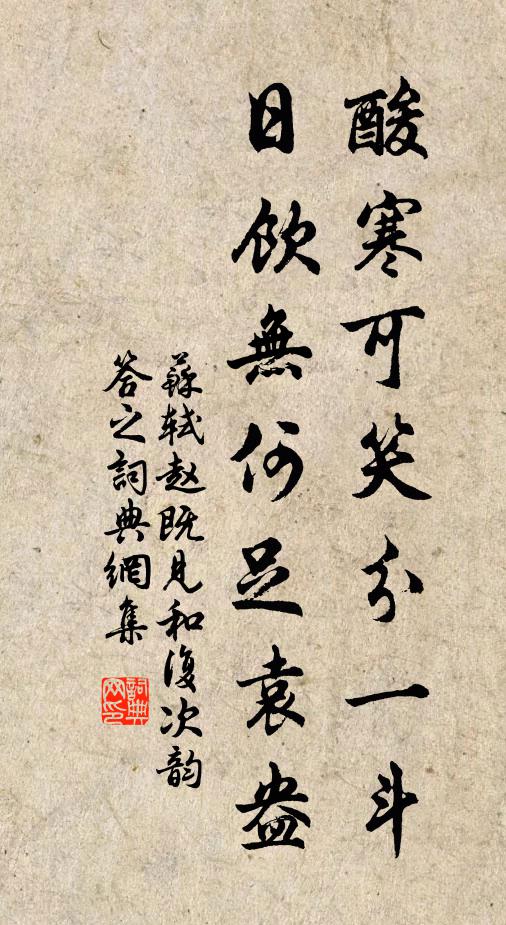 酸寒可笑分一斗
日飲無何足袁盎
蘇軾赵既見和復次韵
答之詞典網集
詞典
网印